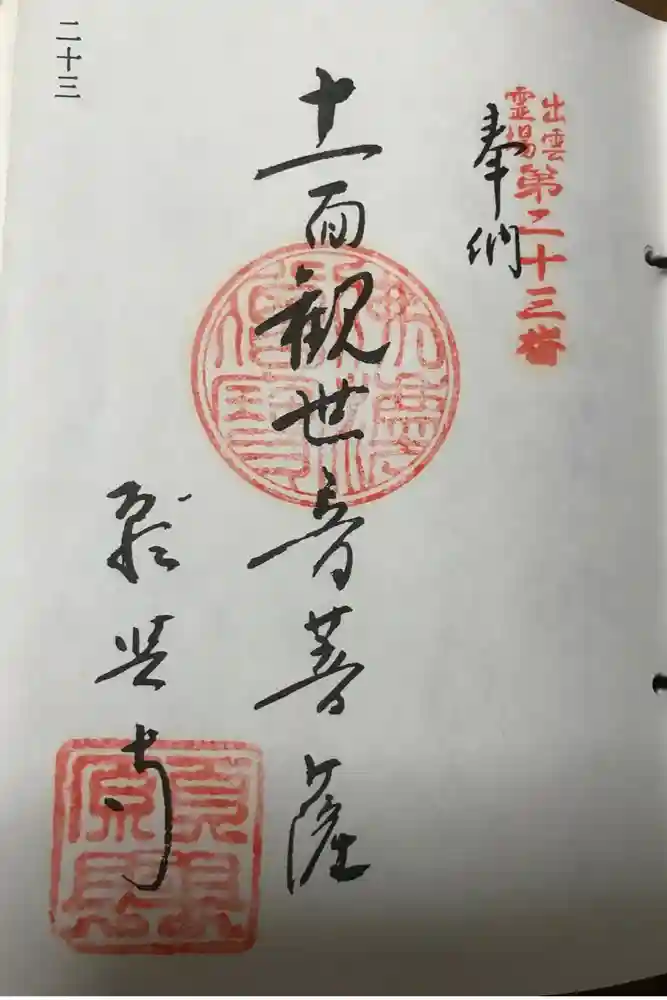 出雲
霊場
第二十三番
奉納
十一面観世音菩薩
願興寺
二十三